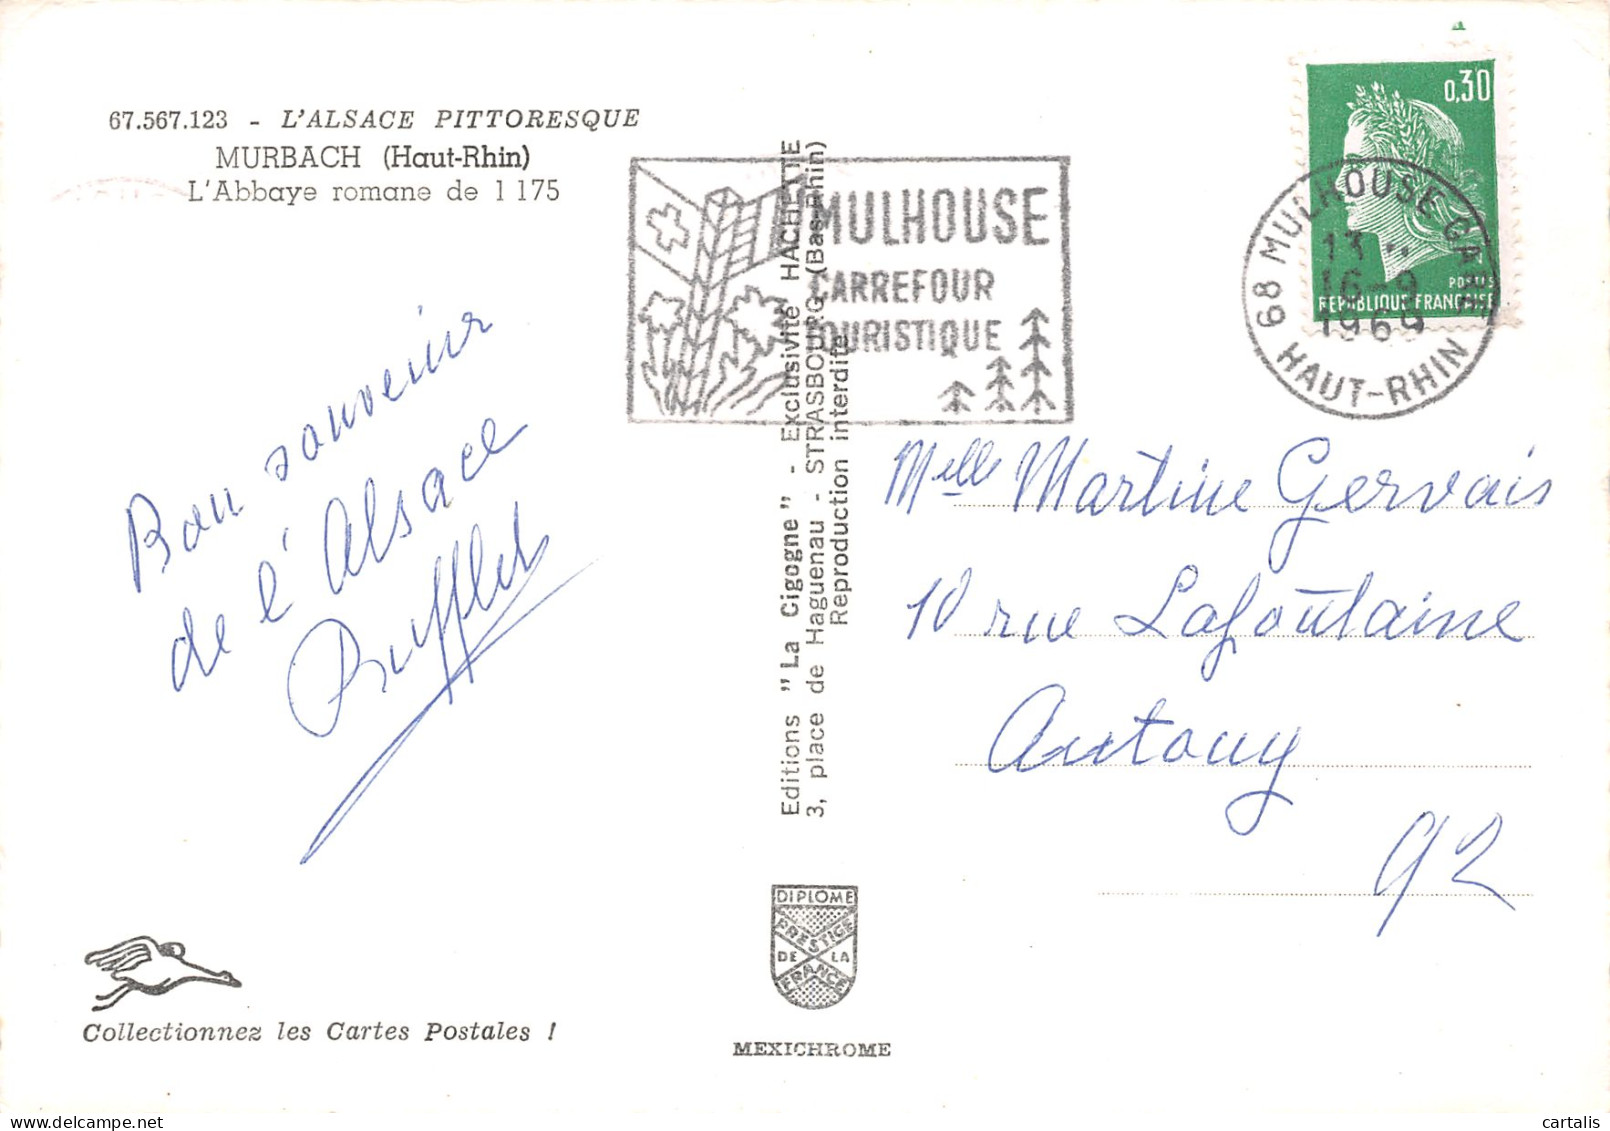 67.567.123 - L'ALSACE PITTORESQUE
MURBACH (Haut-Rhin)
L'Abbaye romane de 1175
Bon souvenir
de l'Alsace
Rufflet
Collectionnez les Cartes Postales !
Editions "La Cigogne" - Exclusivité HACHETTE
3, place de Haguenau - STRASBOURG (Bas-Rhin)
Reproduction interdite
DIPLOME
PRESTIGE
DE LA
FRANCE
MEXICHROME
MULHOUSE
CARREFOUR
TOURISTIQUE
0,30
POSTES
REPUBLIQUE FRANÇAISE
68 MULHOUSE GARE
13
16-9
1969
HAUT-RHIN
Melle Martine Gervais
10 rue Lafoutaine
Antony
92
delcampe.net
cartalis